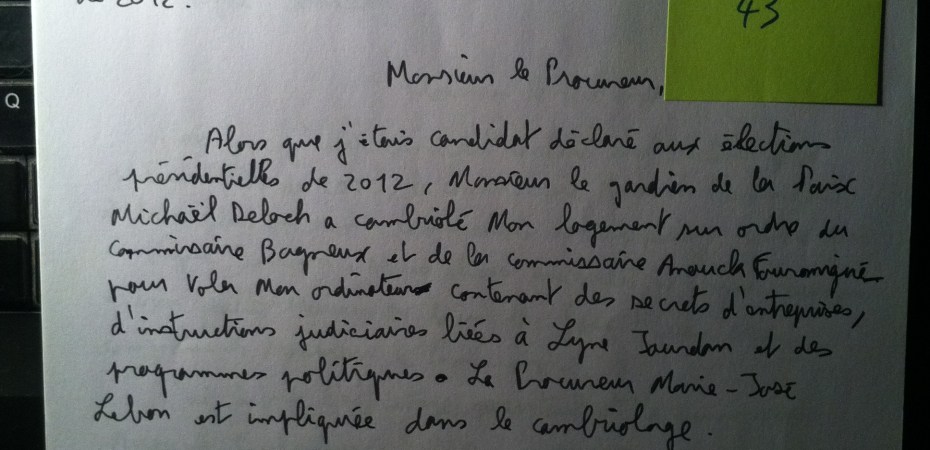 de 2012.
43
Q
Monsieur le Procureur,
Alors que j'étais candidat déclaré aux élections
présidentielles de 2012, Monsieur le gardien de la Paix
Michaël Deloch a cambriolé Mon logement sur ordre du
Commissaire Bagneux et de la commissaire Anouck Fouramigné
pour voler Mon ordinateur contenant des secrets d'entreprises,
d'instructions judiciaires liées à Lyne Jaundan et des
programmes politiques. Le Procureur Marie-José
Lebon est impliquée dans le cambriolage.